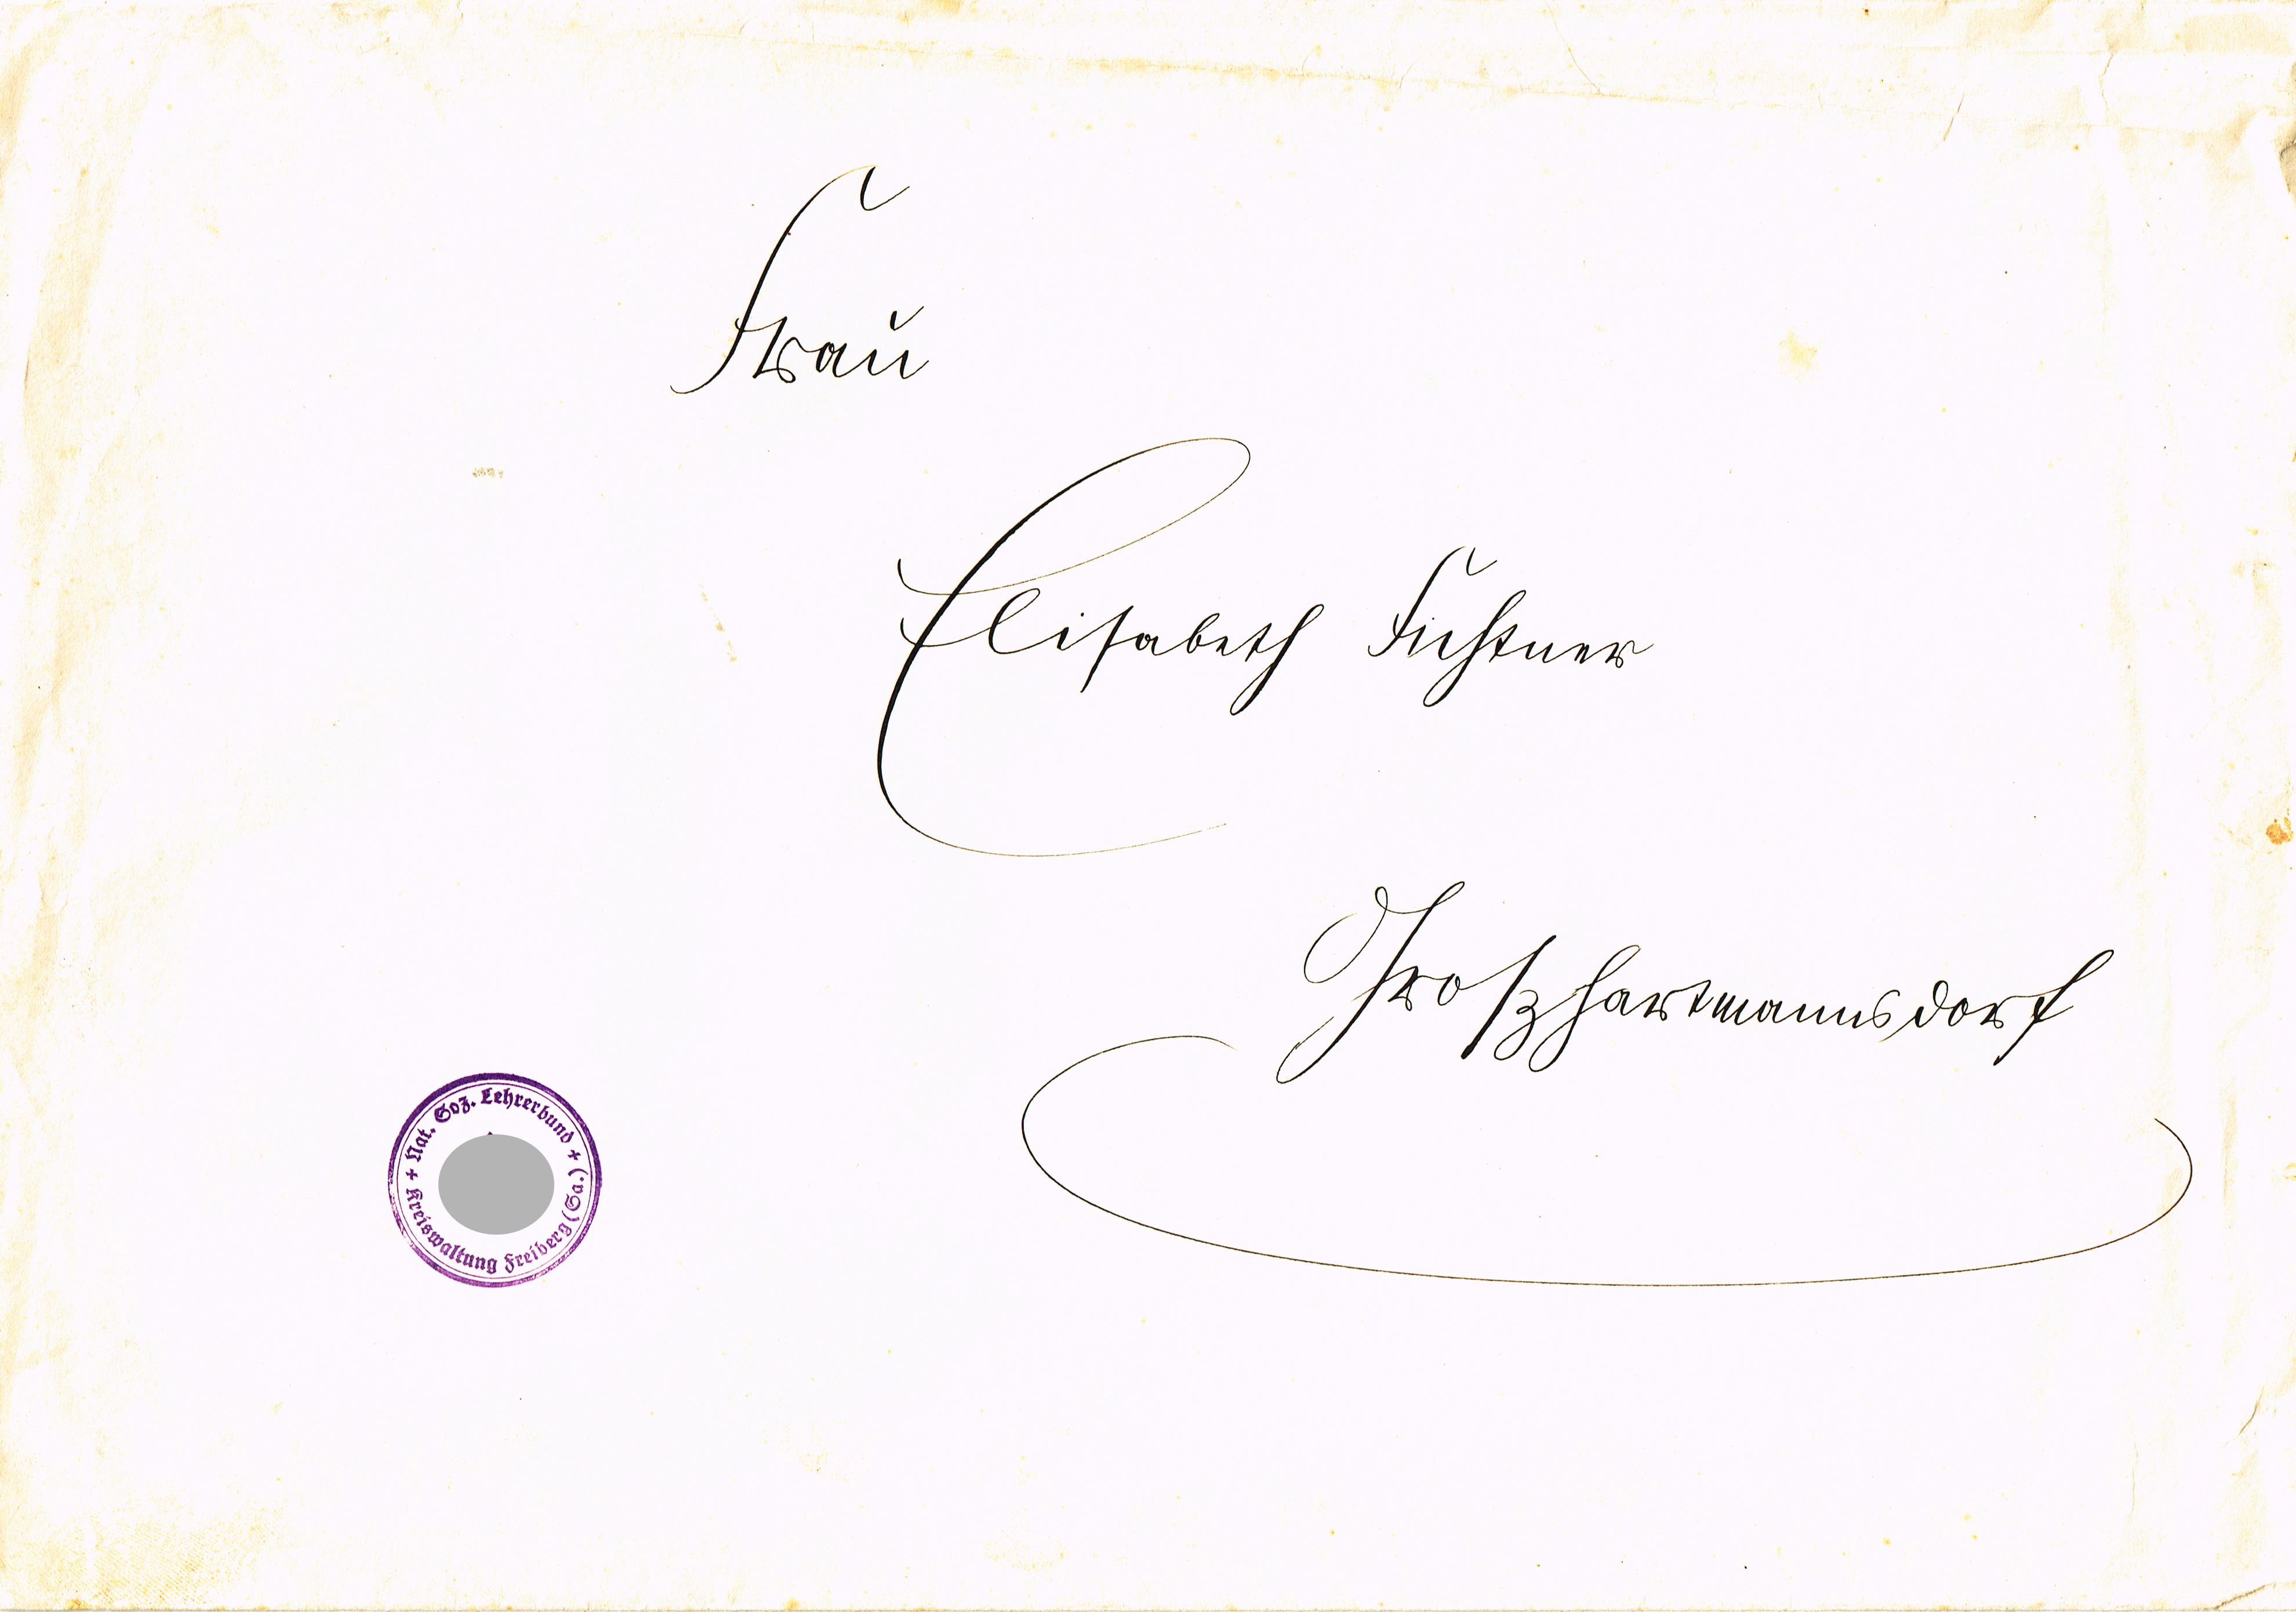 Frau
Elisabeth Fichtner
Großhartmannsdorf
+ Nat. Soz. Lehrerbund +
Kreiswaltung Freiberg (Sa.)